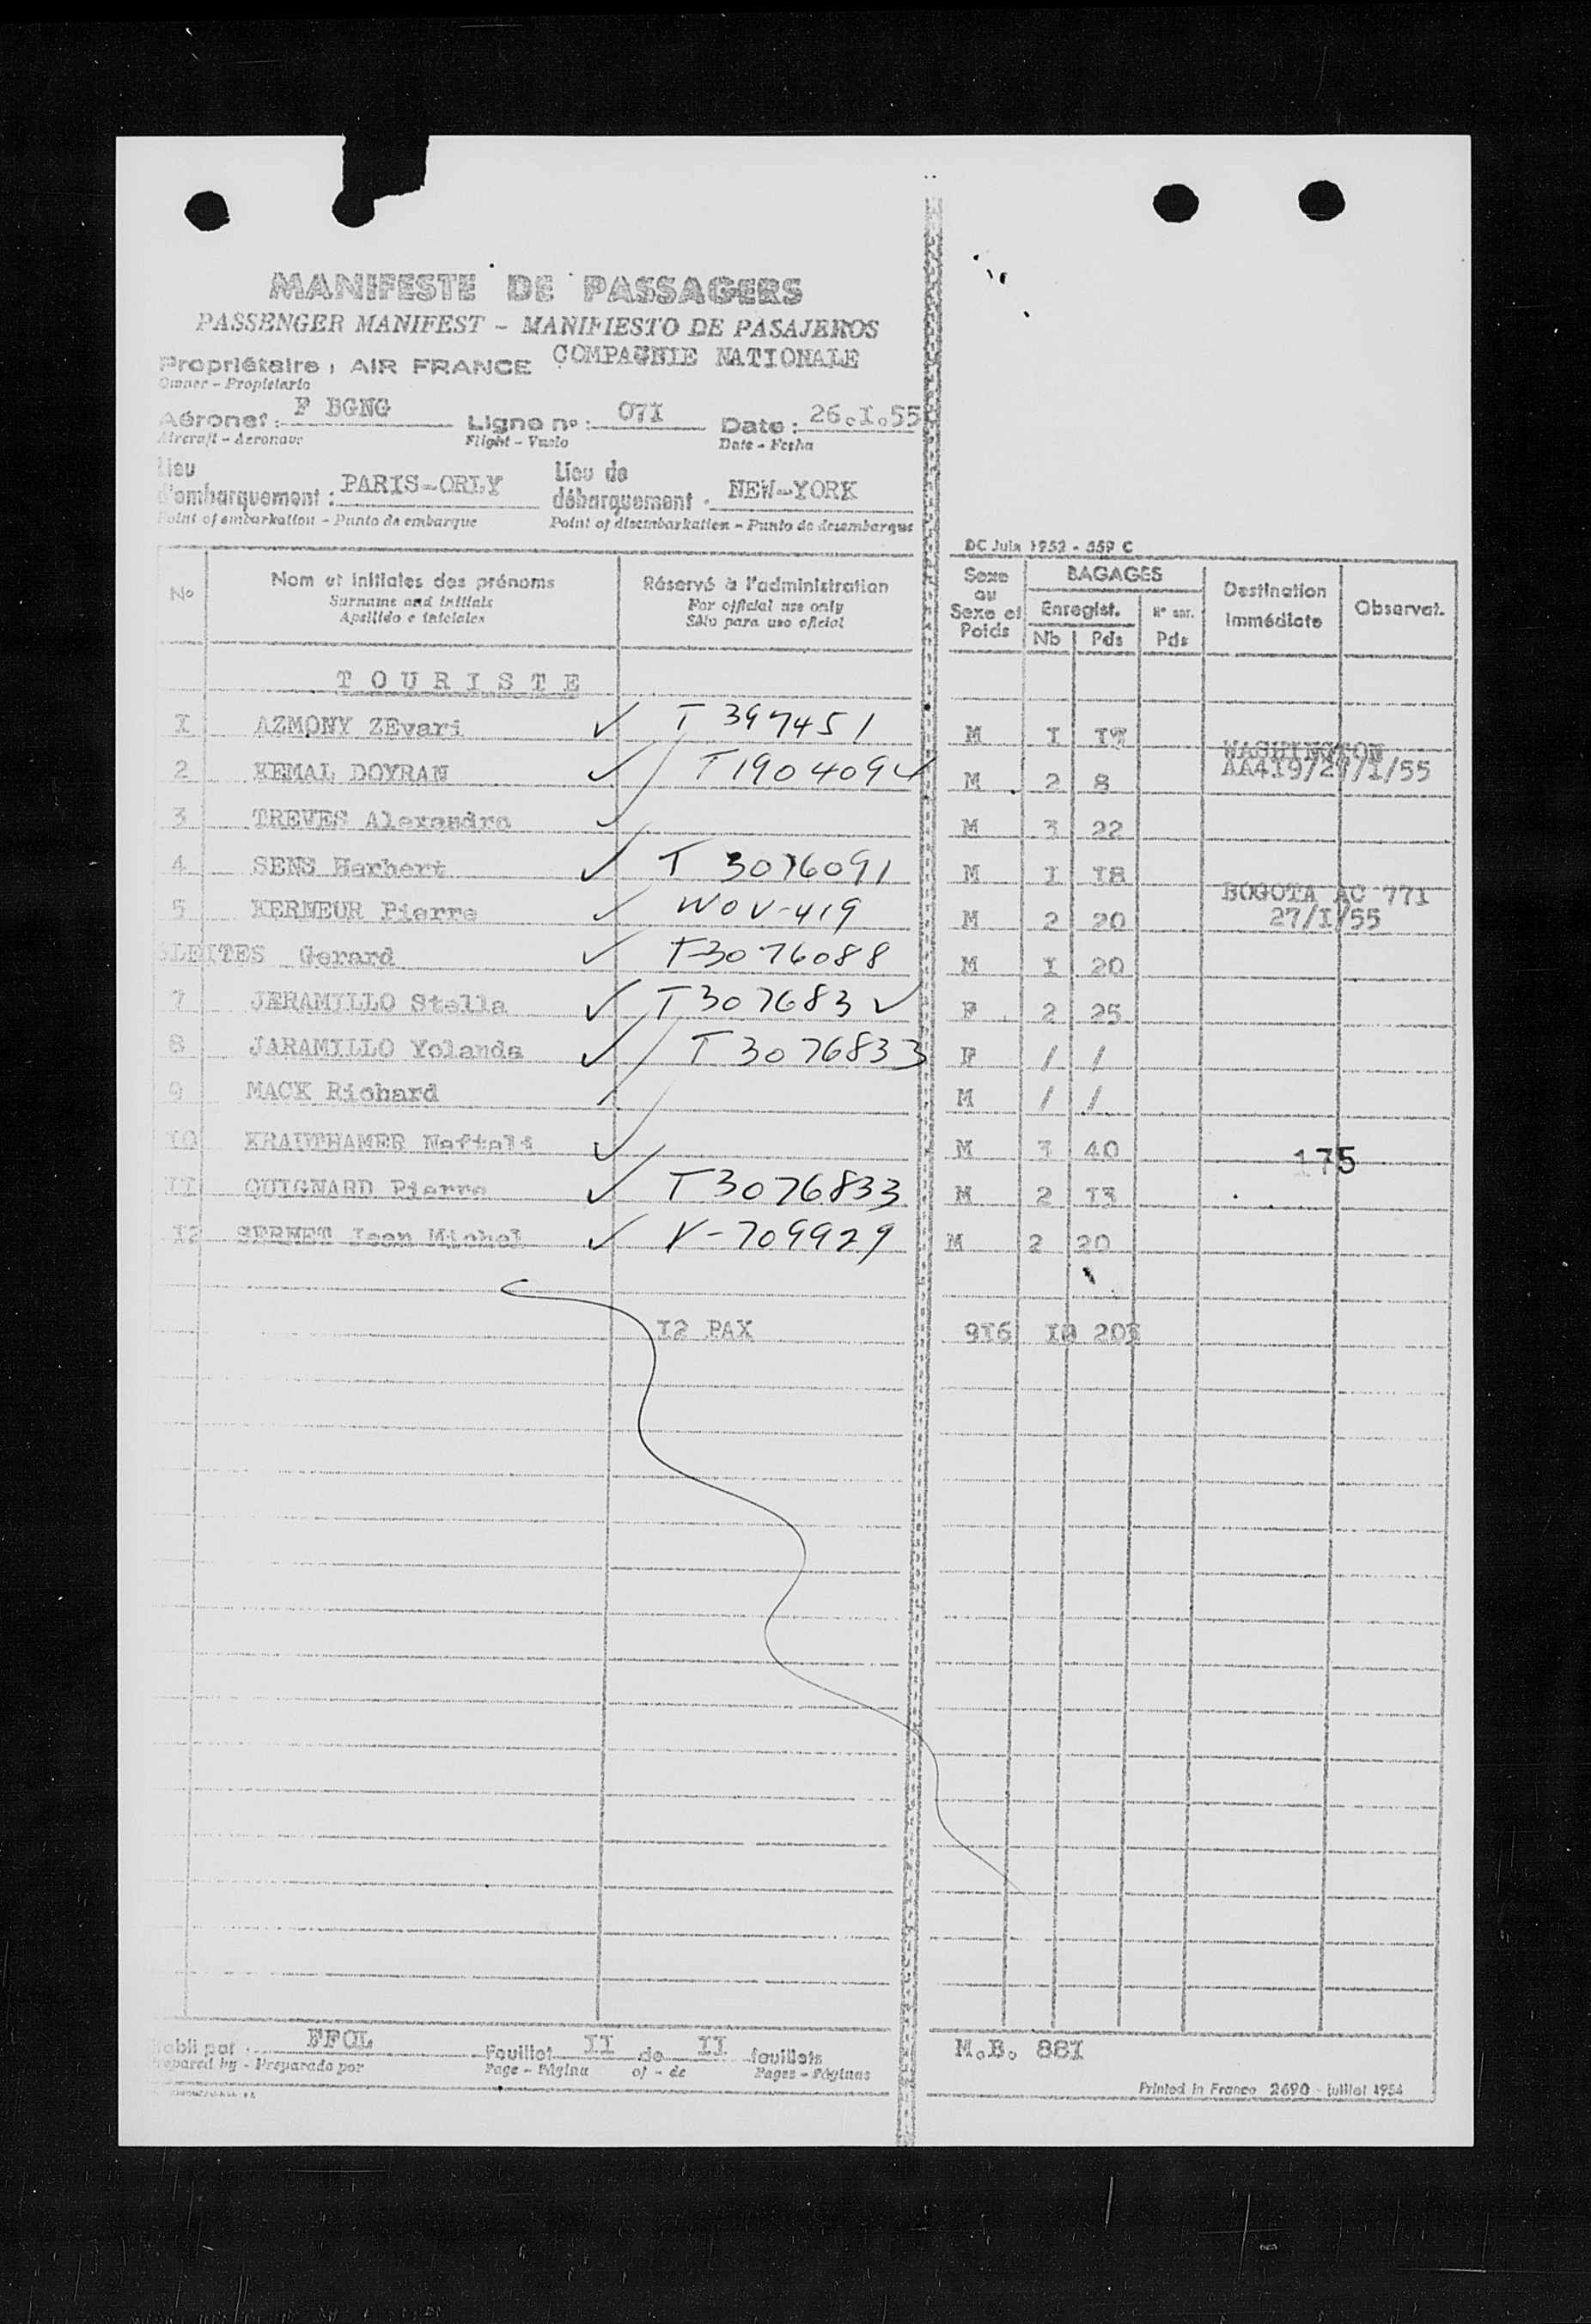 MANIFESTE DE PASSAGERS
PASSENGER MANIFEST - MANIFIESTO DE PASAJEROS
Propriétaire : AIR FRANCE COMPAGNIE NATIONALE
Owner - Propietario
Aéronef : F BGNG Ligne n° : 07I Date : 26.I.55
Aircraft - Aeronave Flight - Vuelo Date - Fecha
Lieu d'embarquement : PARIS-ORLY Lieu de débarquement : NEW-YORK
Point of embarkation - Punto de embarque Point of disembarkation - Punto de desembarque
DC Juin 1952 - 559 C
No Nom et initiales des prénoms Réservé à l'administration Sexe ou Sexe et Poids BAGAGES Destination immédiate Observat.
Surname and initials For official use only Enregist. N° enr.
Apellido e iniciales Sólo para uso oficial Nb Pds Pds
T O U R I S T E
I AZMONY ZEvari ✓ T 397451 M I I7 WASHINGTON
2 KEMAL DOYRAN ✓ T1904094 ✓ M 2 8 AA4I9/27/I/55
3 TREVES Alexandre ✓ M 3 22
4 SENS Herbert ✓ T 3076091 M I I8
5 KERNEUR Pierre ✓ WOV-419 M 2 20 BOGOTA AC 77I 27/I/55
6LEITES Gerard ✓ T-3076088 M I 20
7 JERAMILLO Stella ✓ T307683 ✓ F 2 25
8 JARAMILLO Yolanda ✓ T 3076833 F / /
9 MACK Richard M / /
I0 KRAUTHAMER Naftali ✓ M 3 40 175
II QUIGNARD Pierre ✓ T3076833 M 2 I3
I2 SERNET Jean Michel ✓ V-709929 M 2 20
I2 PAX 9I6 20I
Etabli par : FFCL Feuillet II de II feuillets M.B. 88I
Prepared by - Preparado por Page - Página of - de Pages - Páginas
Printed in France 2690 - juillet 1954